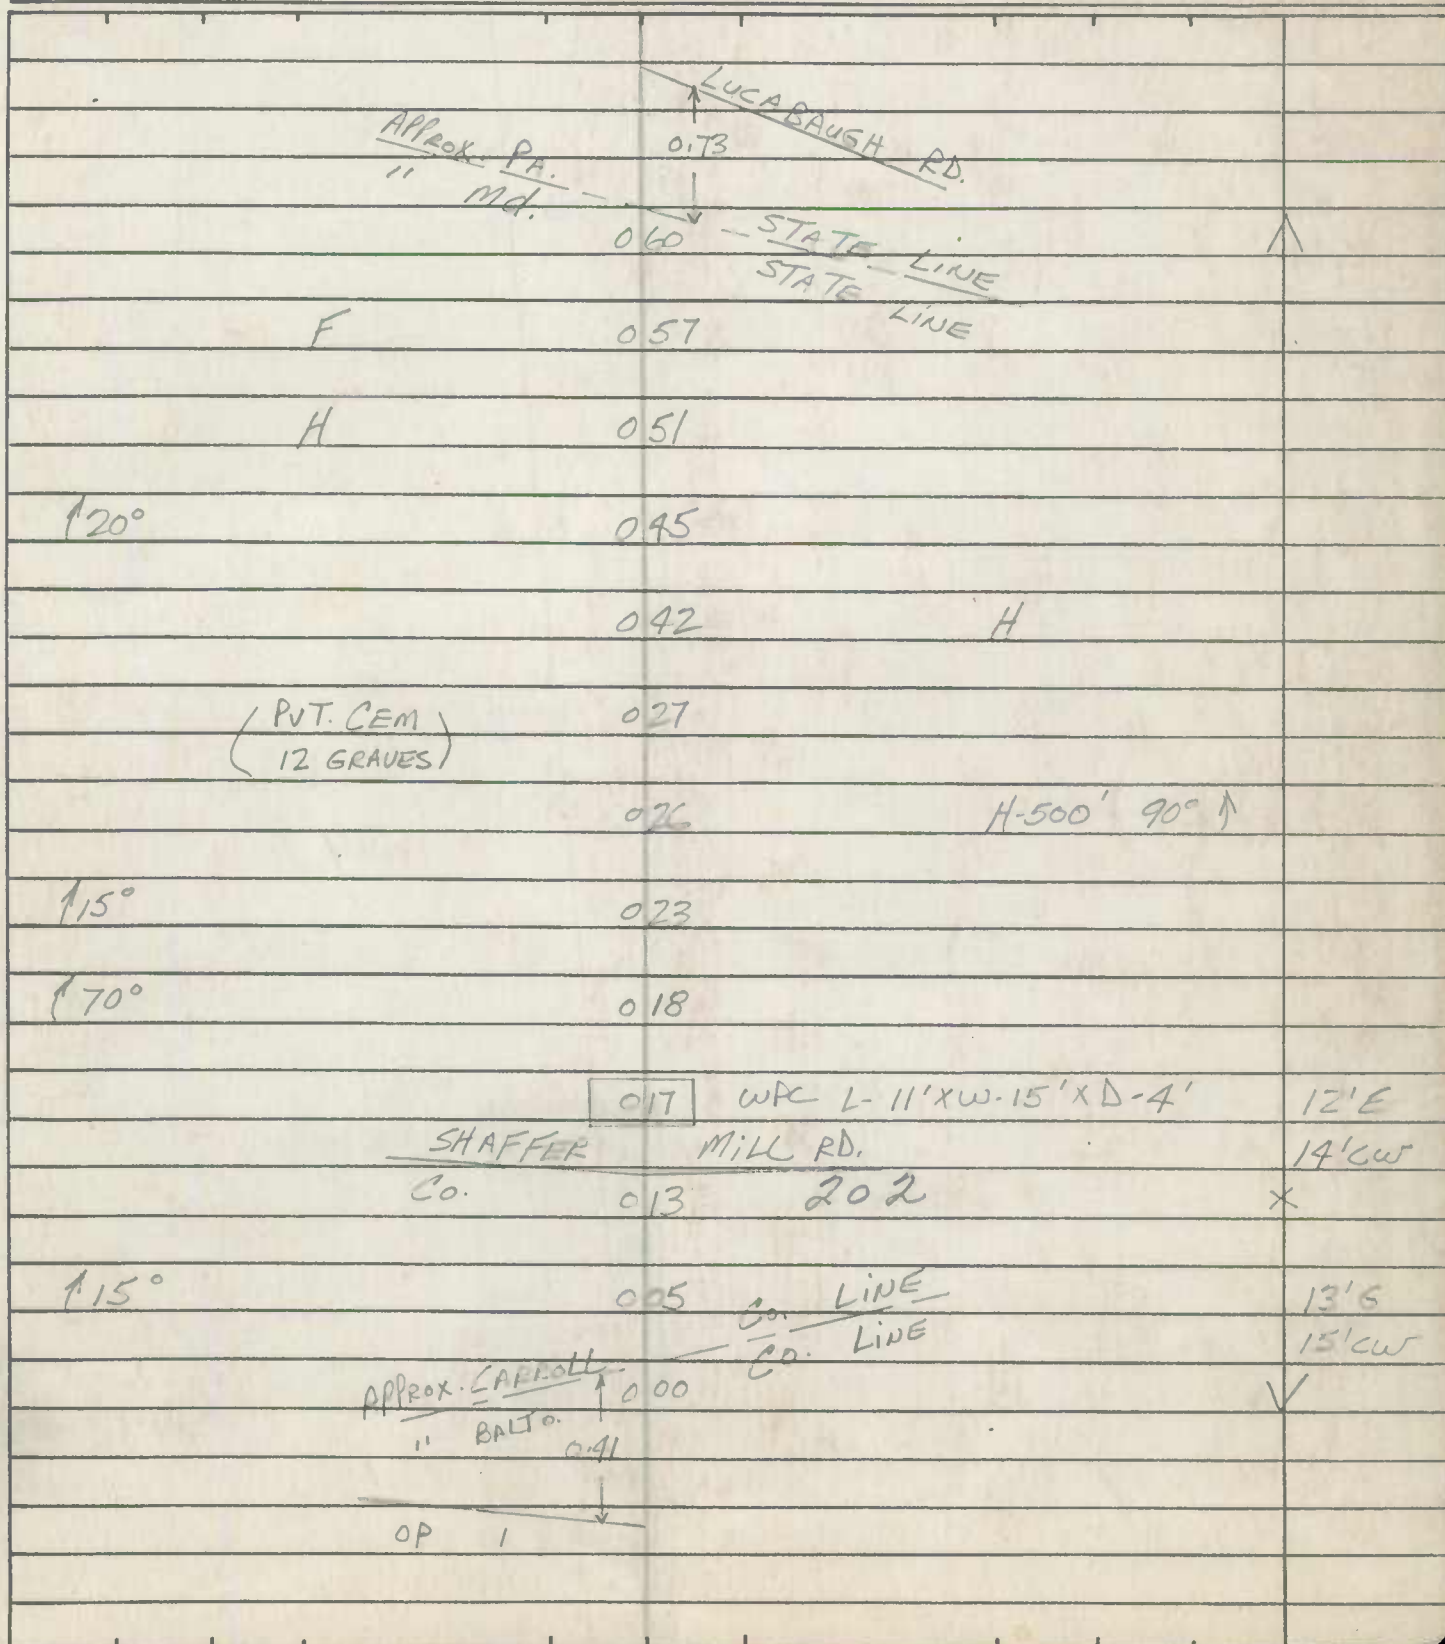 LUCABAUGH RD.
0.73
APPROX. PA.
" Md.
0 60
STATE LINE
STATE LINE
F 0 57
H 0 51
↑20° 0 45
0 42 H
(PVT. CEM 0 27
12 GRAVES)
0 26 H-500' 90° ↑
↑15° 0 23
↑70° 0 18
0 17 WPC L-11'XW-15'XD-4' 12'E
SHAFFER MILL RD. 14'CW
Co. 0 13 202 X
↑15° 0 05 Co. LINE 13'G
Co. LINE 15'CW
APPROX. CARROLL 0 00
" BALTO.
0.41
OP 1